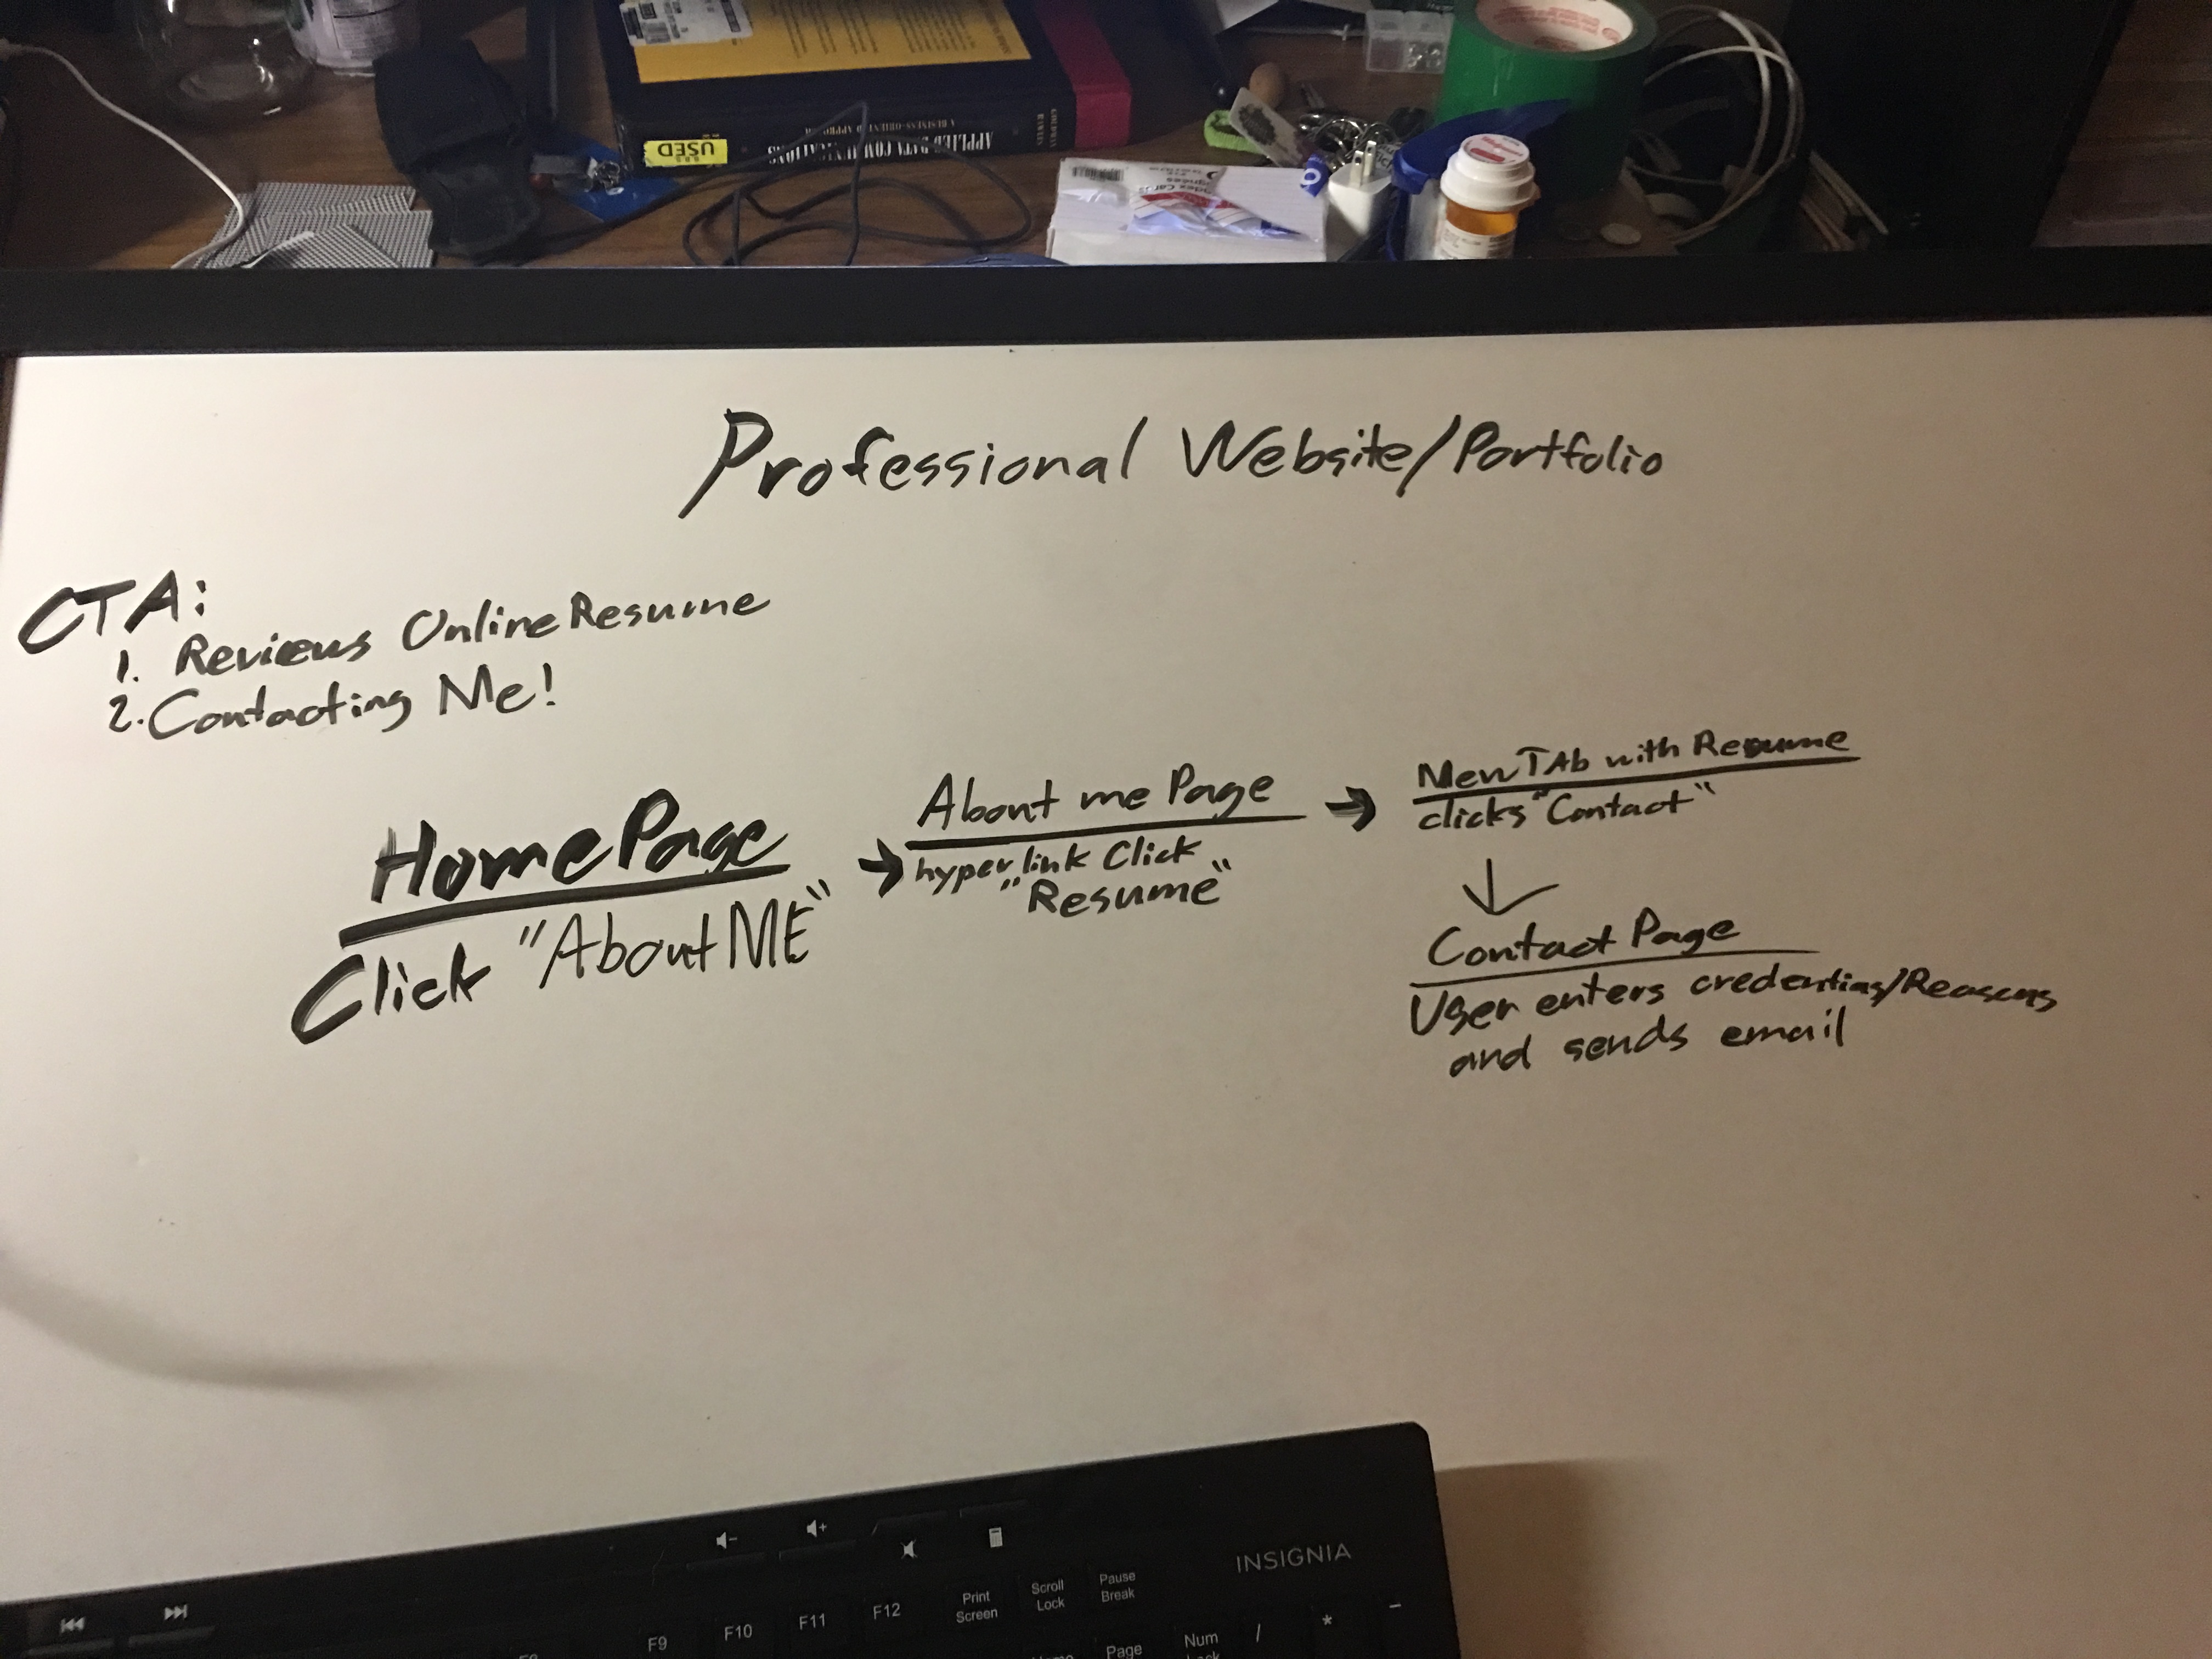 USED
APPLIED DATA COMMUNICATIONS
A BUSINESS-ORIENTED APPROACH
Professional Website/Portfolio
CTA:
1. Reviews Online Resume
2. Contacting Me!
Home Page
Click "About ME"
About me Page
hyperlink Click
"Resume"
New TAb with Resume
clicks "Contact"
Contact Page
User enters credentias/Reasons
and sends email
INSIGNIA
Print
Screen
Scroll
Lock
Pause
Break
F9
F10
F11
F12
Page
Num
/
*
-